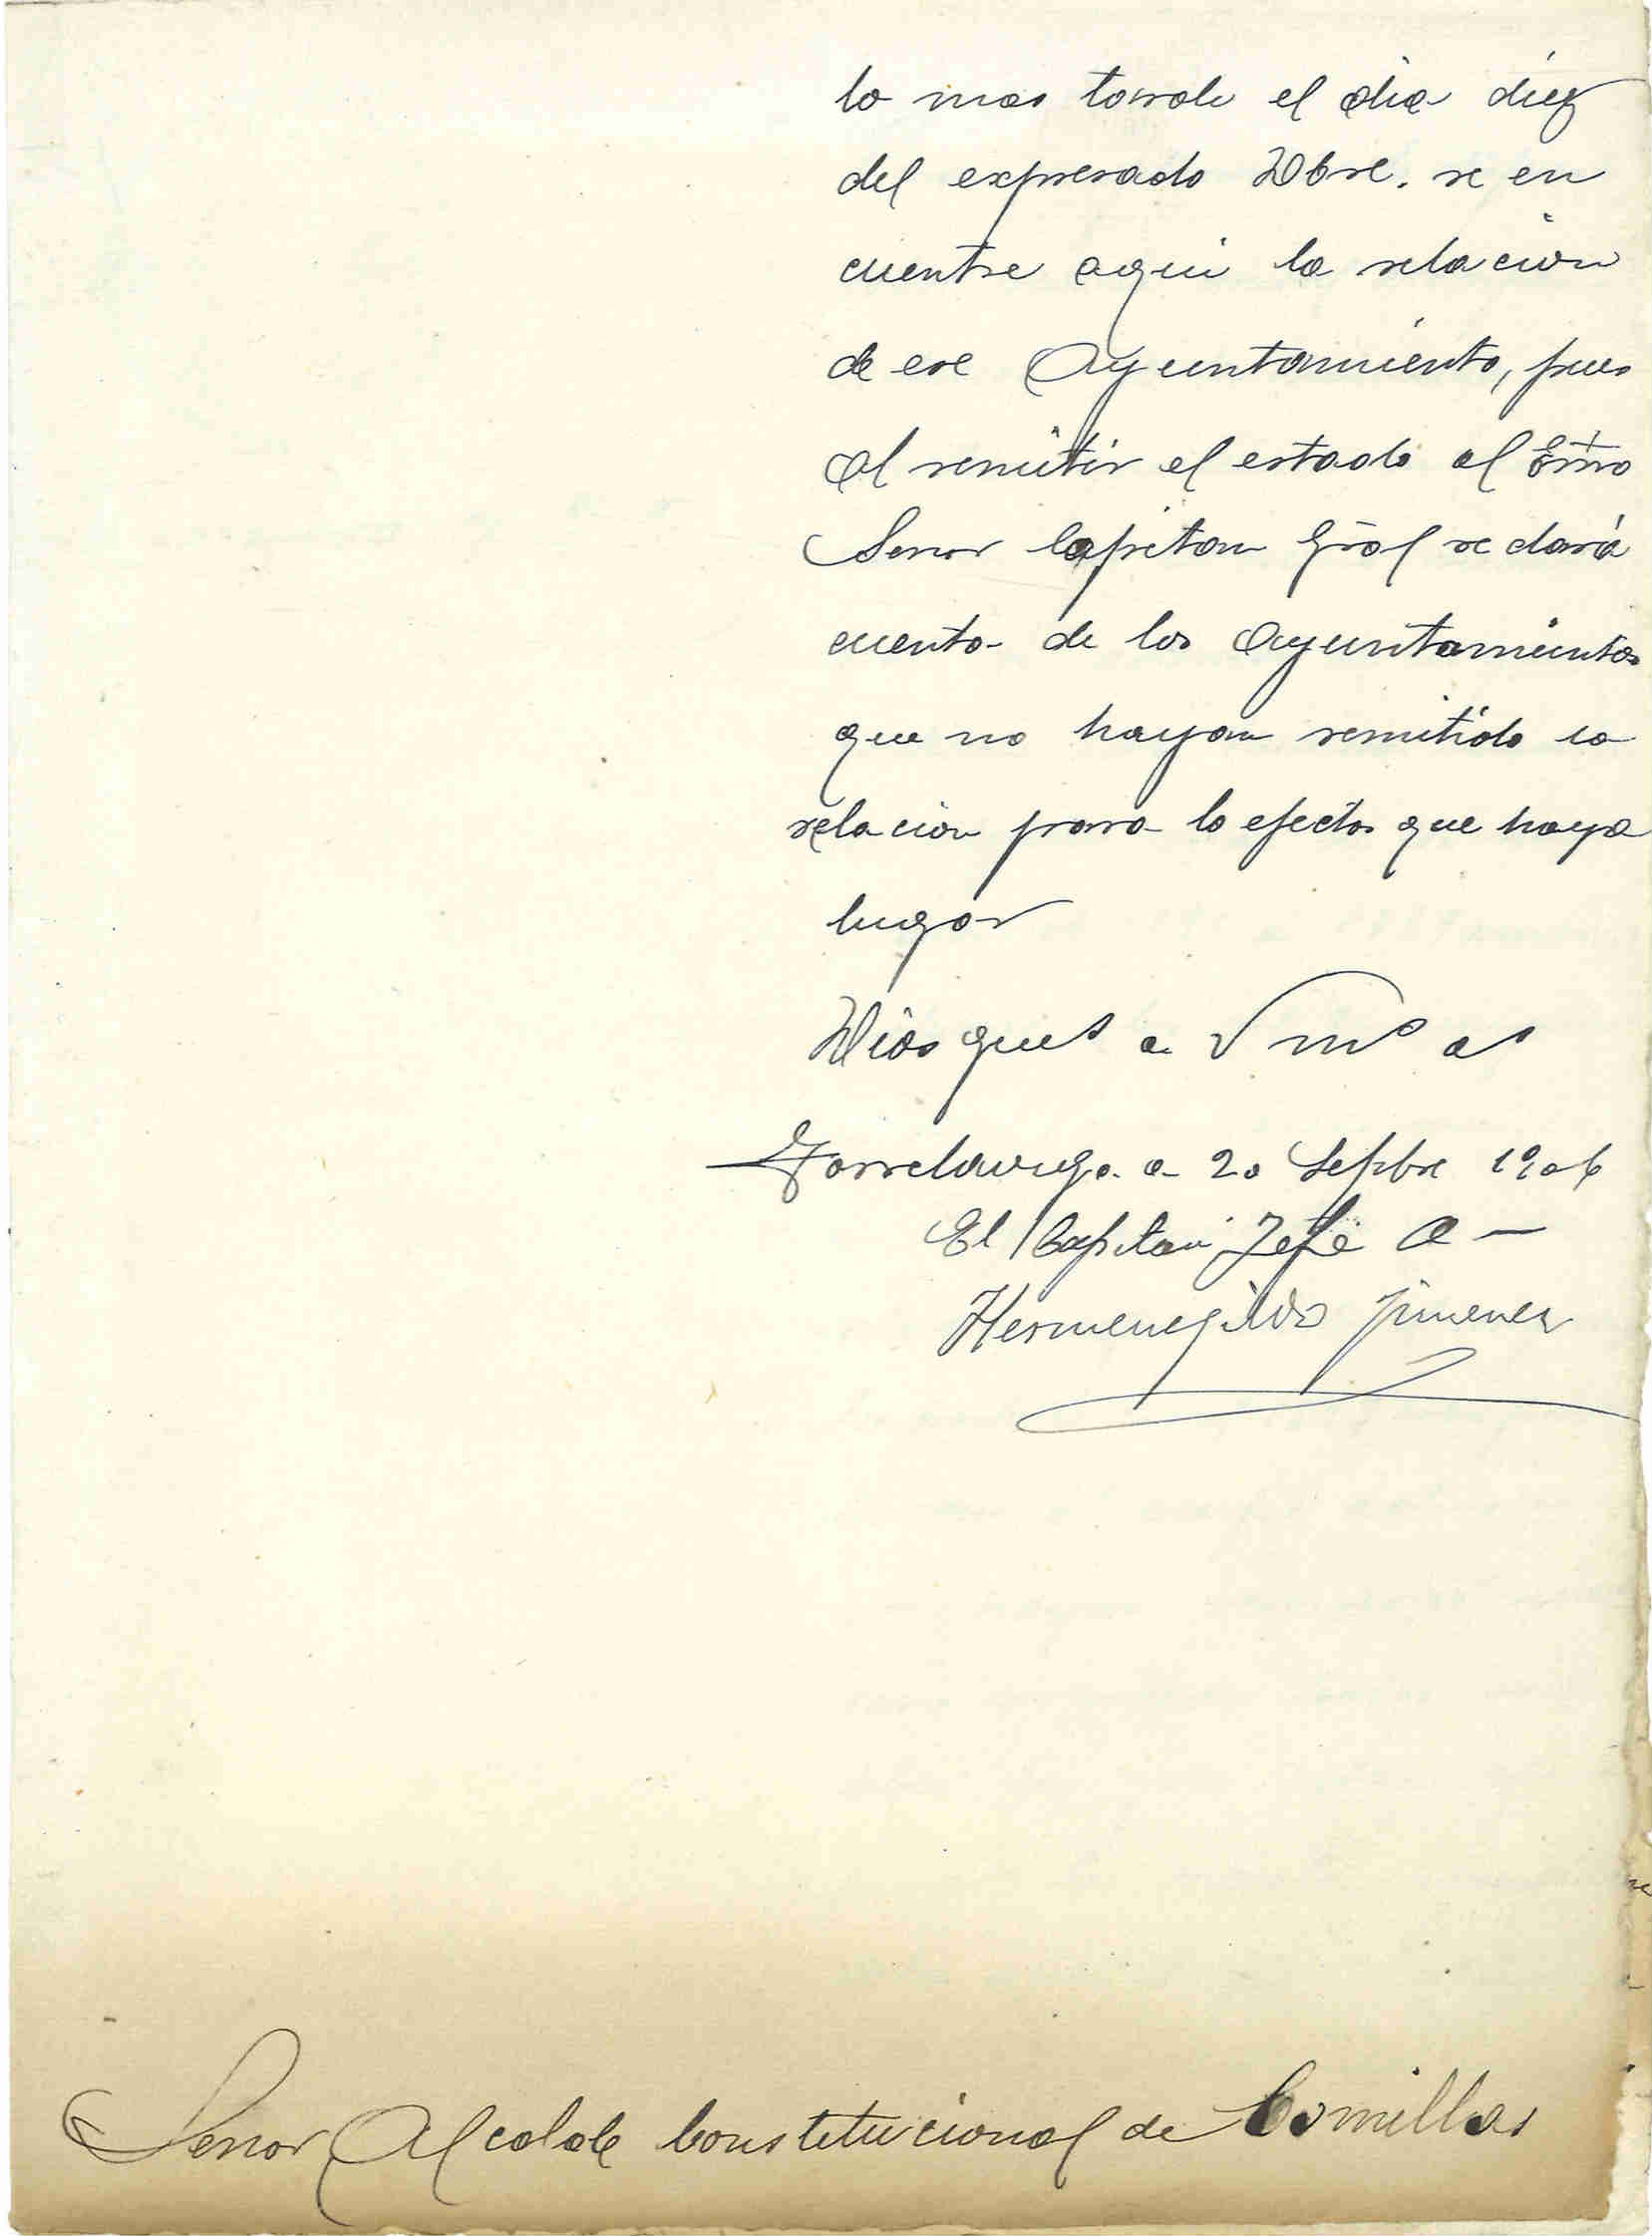 lo mas tarde el dia diez
del expresado Dbre. se en
cuentre aqui la relación
de ese Ayuntamiento, pues
al remitir el estado al Exmo
Senor Capitan Gral se dará
cuenta de los Ayuntamientos
que no hayan remitido la
relacion para lo efectos que haya
lugar
Dios gue a V ms as
Torrelavega a 20 Sepbre 1906
El Capitan Jefe A
Hermenegildo Jimenez
Senor Alcalde Constitucional de Comillas